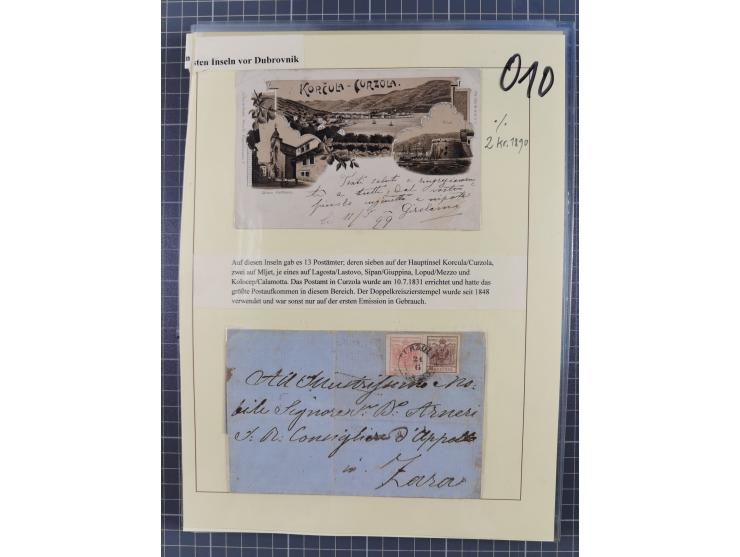 sten Inseln vor Dubrovnik
010
KORČULA - CURZOLA.
·/.
2 Kr. 1890
Tanti saluti e ringraziamen
ti a tutti, dal vostro
li 11/5 99 Girolamo
Auf diesen Inseln gab es 13 Postämter; deren sieben auf der Hauptinsel Korcula/Curzola,
zwei auf Mljet, je eines auf Lagosta/Lastovo, Sipan/Giuppina, Lopud/Mezzo und
Kolocep/Calamotta. Das Postamt in Curzola wurde am 10.7.1831 errichtet und hatte das
größte Postaufkommen in diesem Bereich. Der Doppelkreiszierstempel wurde seit 1848
verwendet und war sonst nur auf der ersten Emission in Gebrauch.
CURZOLA
24
6
All Illustrissimo No-
bile Signore Dr. Arneri
I. R. Consigliere d'Appello
in
Zara